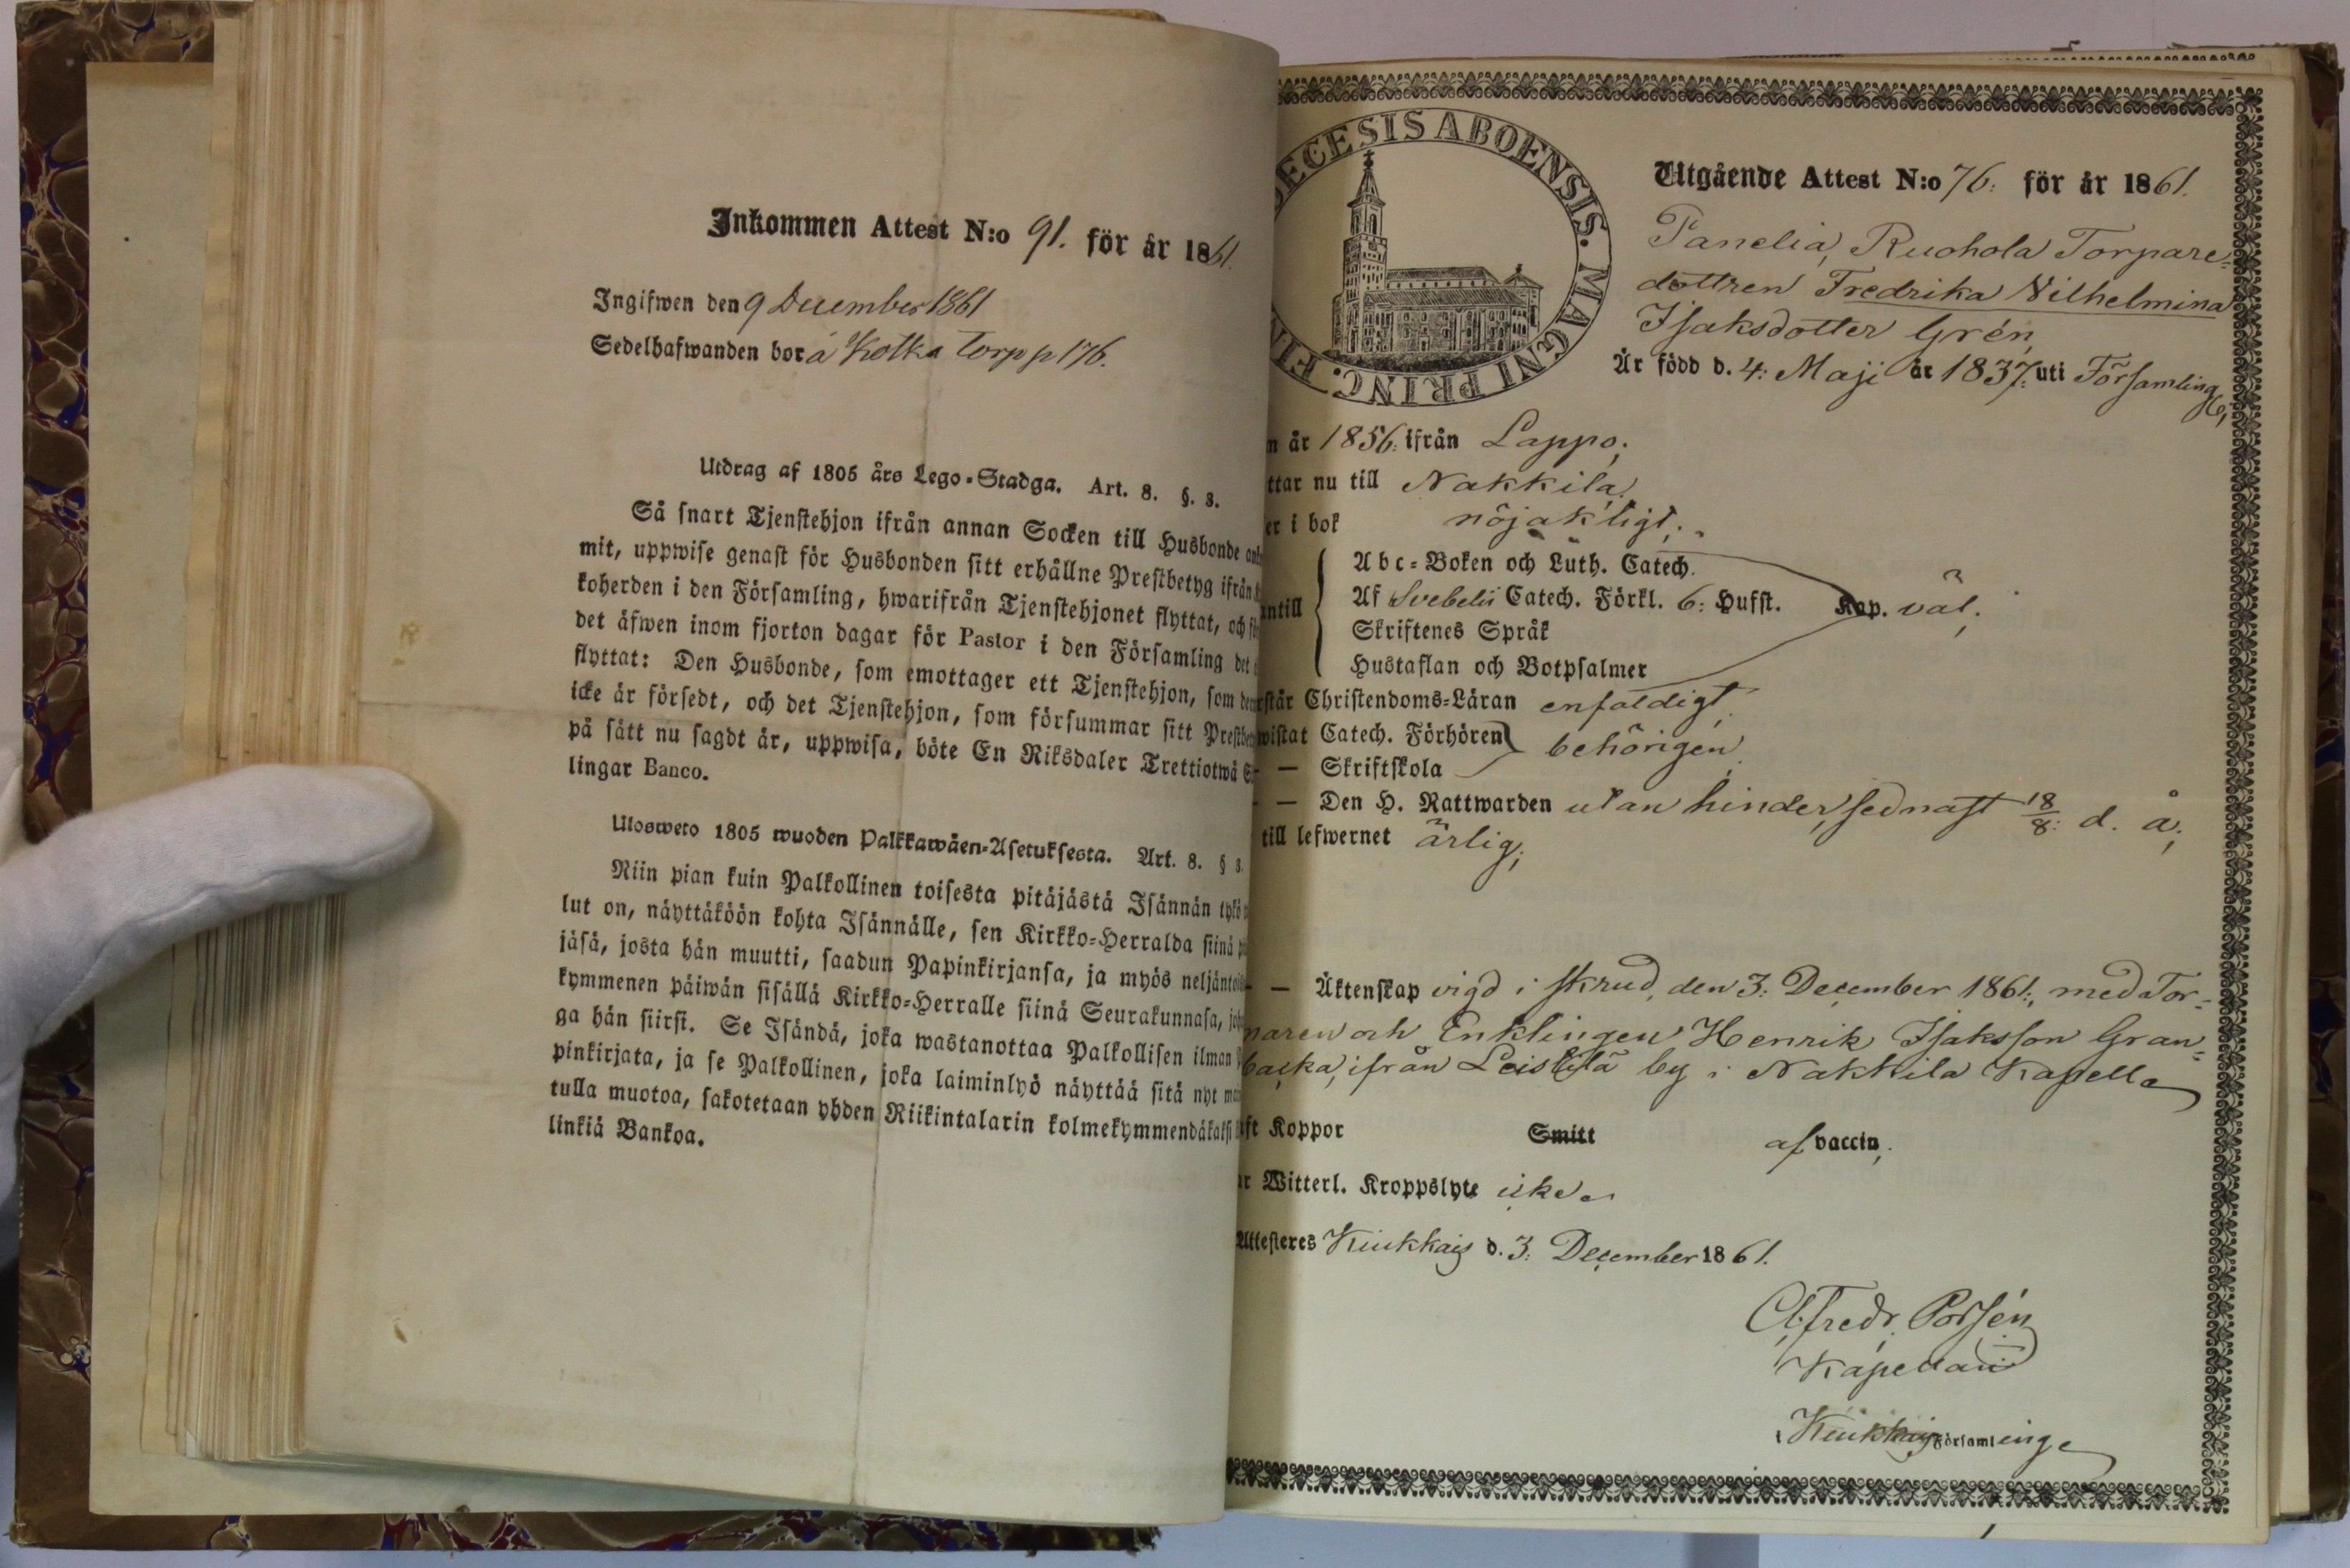 Inkommen Attest N:o 91. för år 1861.
Ingifwen den 9 December 1861
Sedelhafwanden bor å Kotka torp p 176.
Utdrag af 1805 års Lego-Stadga. Art. 8. §. 3.
Så snart Tjenstehjon ifrån annan Socken till Husbonde
mit, uppwise genast för Husbonden sitt erhållne Prestbetyg ifrån
koherden i den Församling, hwarifrån Tjenstehjonet flyttat, och
det äfwen inom fjorton dagar för Pastor i den Församling det
flyttat: Den Husbonde, som emottager ett Tjenstehjon, som
icke är försedt, och det Tjenstehjon, som försummar sitt
på sätt nu sagdt är, uppwisa, böte En Riksdaler Trettiotwå
lingar Banco.
Ulosweto 1805 wuoden Palkkawäen-Asetuksesta. Art. 8. § 3.
Niin pian kuin Palkollinen toisesta pitäjästä Isännän tykö
lut on, näyttäköön kohta Isännälle, sen Kirkko-Herralda siinä
jäsä, josta hän muutti, saadun Papinkirjansa, ja myös
kymmenen päiwän sisällä Kirkko-Herralle siinä Seurakunnasa,
ga hän siirsi. Se Isändä, joka wastanottaa Palkollisen ilman
pinkirjata, ja se Palkollinen, joka laiminlyö näyttää sitä nyt
tulla muotoa, sakotetaan yhden Riikintalarin kolmekymmendäkaksi
linkiä Bankoa.
DECESIS ABOENSIS. MAGNI PRINC. FIN
Utgående Attest N:o 76. för år 1861.
Panelia, Ruohola Torpare-
dottren Fredrika Vilhelmina
Isaksdotter Grén,
Är född d. 4: Maji år 1837: uti Församling
n år 1856: ifrån Lappo;
ttar nu till Nakkila;
er i bok nöjaktigt;
Abc-Boken och Luth. Catech.
ntill Af Svebelii Catech. Förkl. 6: Hufst. Kap. väl;
Skriftenes Språk
Hustaflan och Botpsalmer
står Christendoms-Läran enfaldigt,
wistat Catech. Förhören behörigen
— Skriftskola
— Den H. Nattwarden utan hinder, sednast 18/8: d. å;
till lefwernet ärlig;
— Äktenskap vigd i skrud, den 3: December 1861:, med Tor-
paren och Enklingen Henrik Isaksson Gran-
backa, ifrån Leistilä by i Nakkila Kapell
ft Koppor Smitt af vaccin,
r Witterl. Kroppslyte icke
Attesteres Kiukkais d. 3: December 1861.
Alfredr. Porsén
Kapellan
i Kiukkais Församlinge